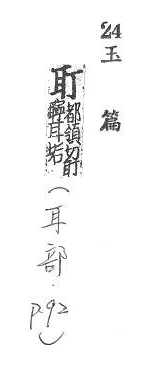 24 玉篇
耵
都領切耵
聹耳垢
(耳部.p.92)